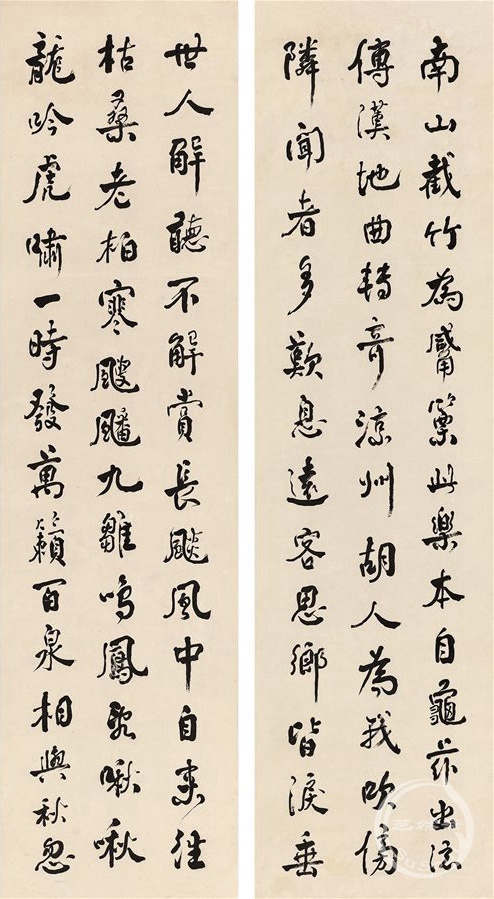 南山截竹為觱篥此樂本自龜茲出流
傳漢地曲轉奇涼州胡人為我吹傍
隣聞者多歎息遠客思鄉皆淚垂
世人解聽不解賞長飈風中自來往
枯桑老柏寒颼飀九雛鳴鳳亂啾啾
龍吟虎嘯一時發萬籟百泉相與秋忽